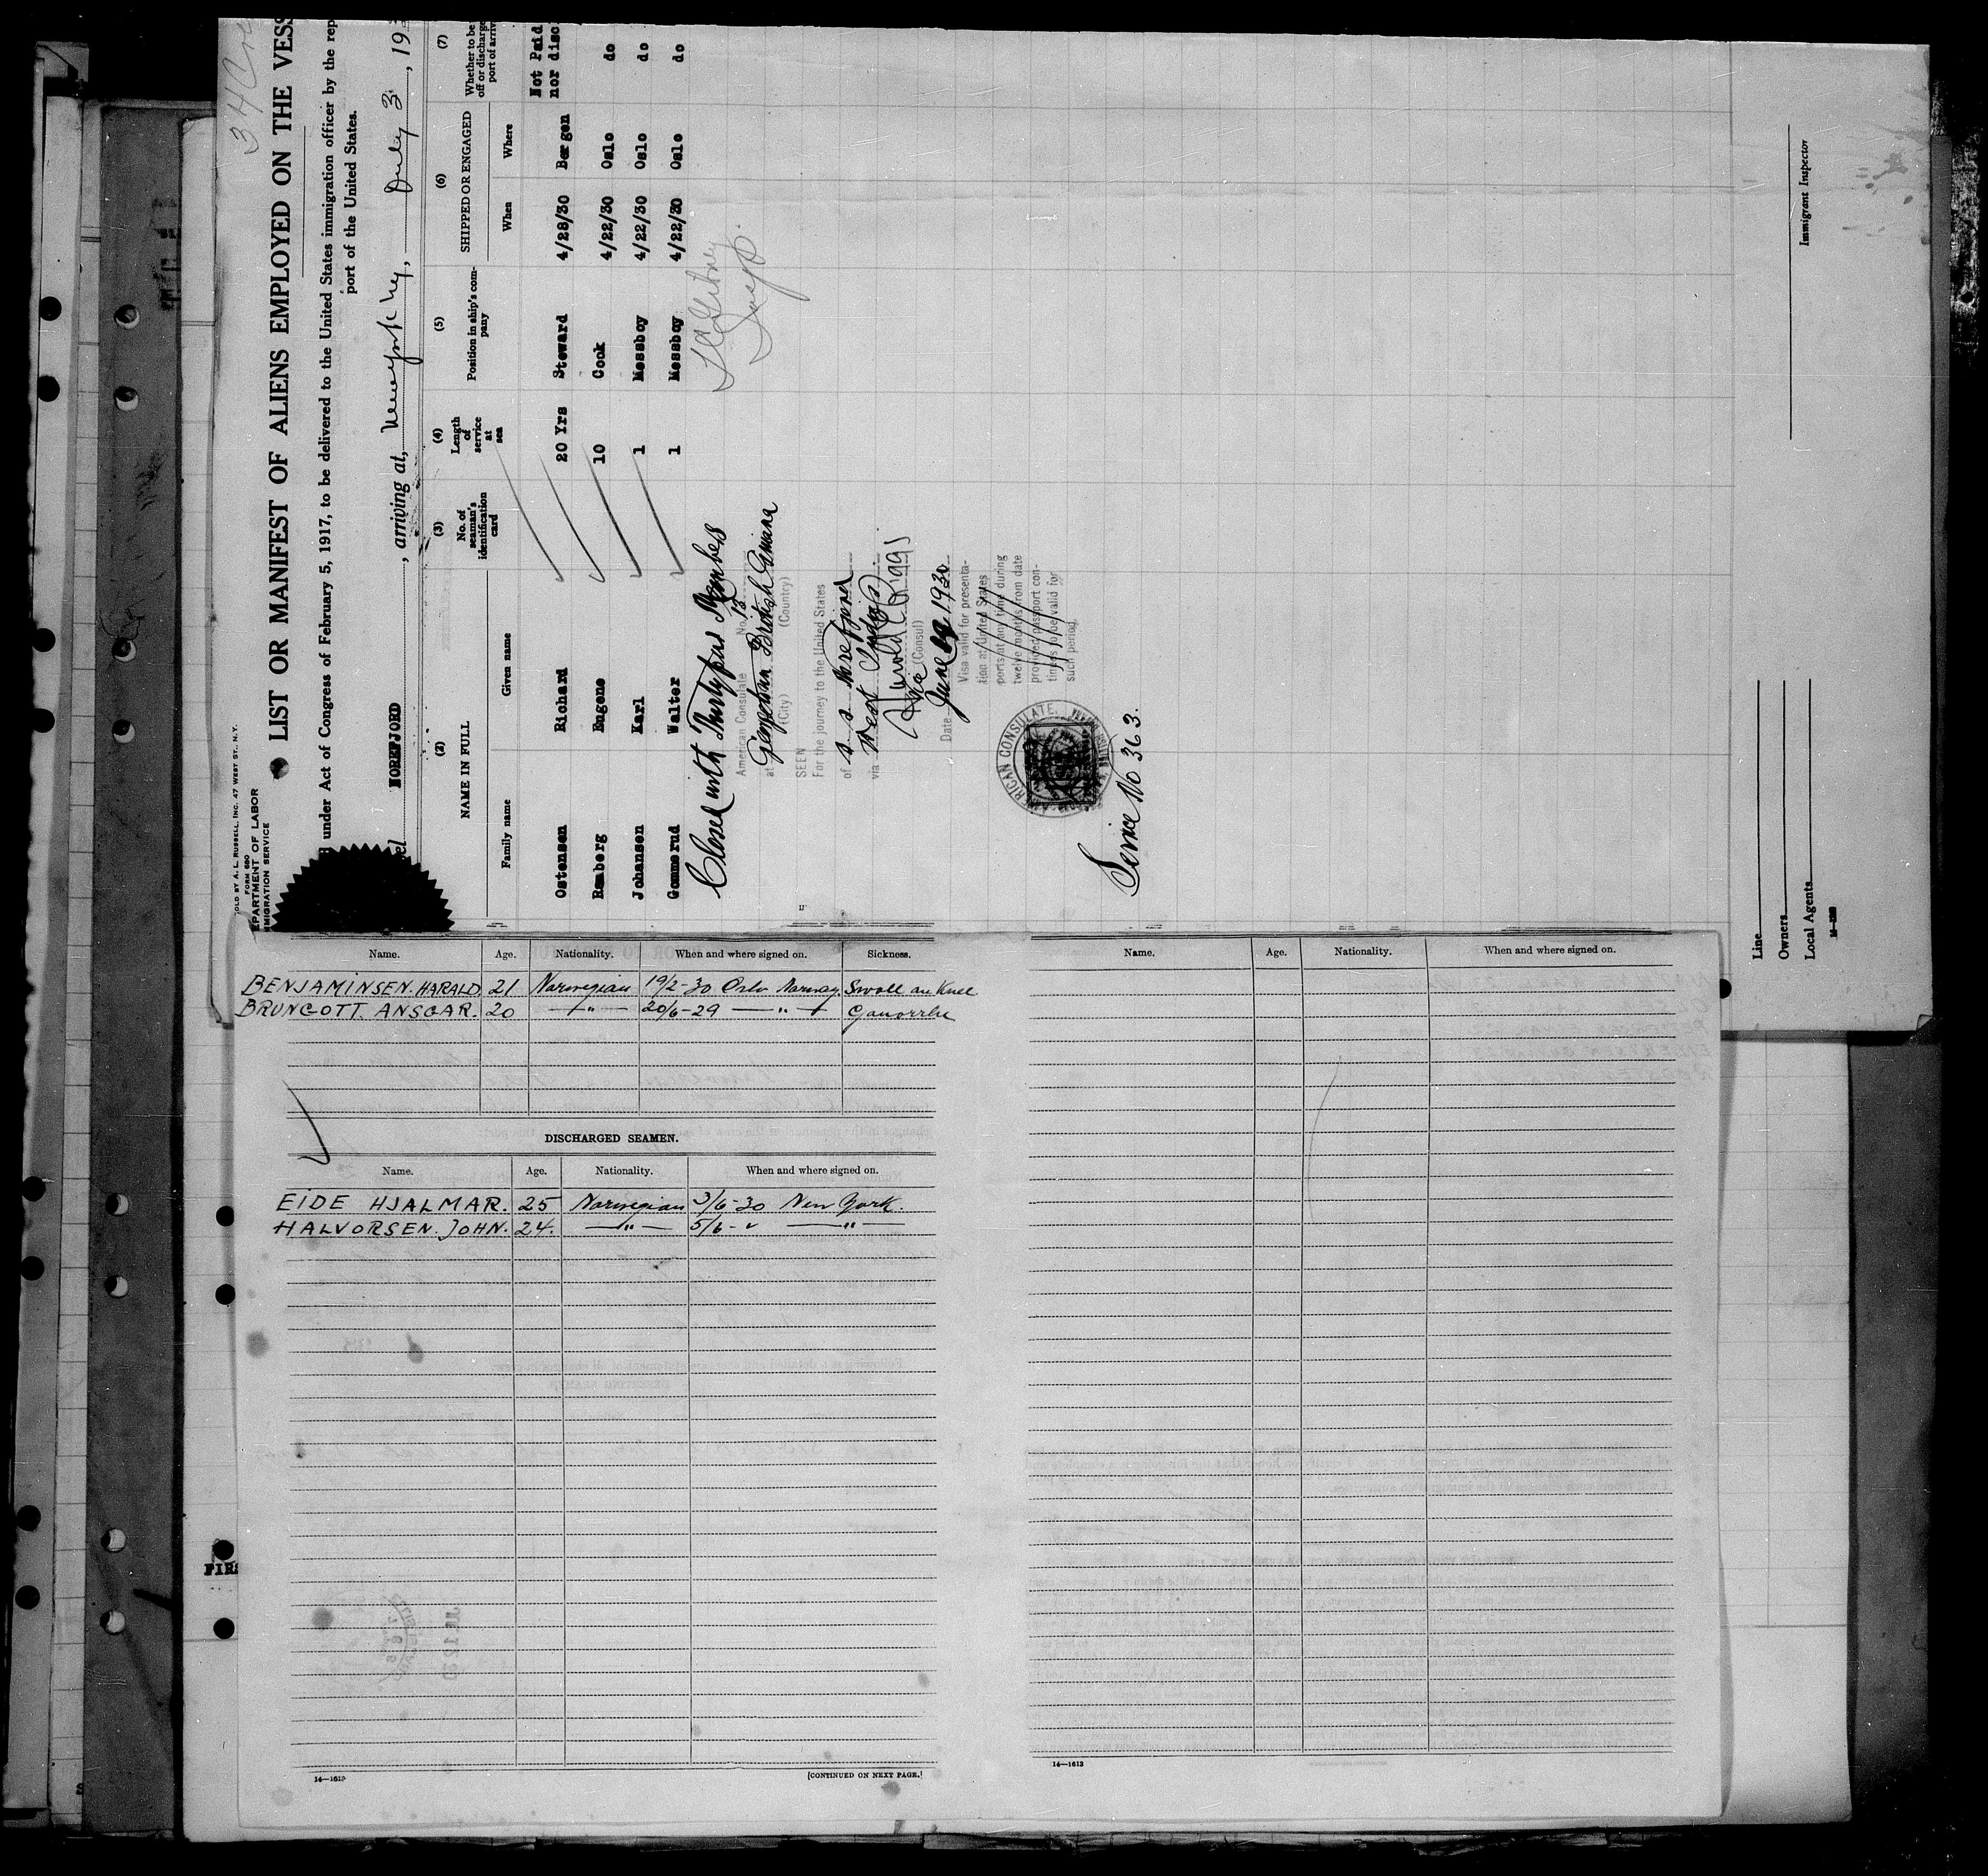 34 Crew
SOLD BY A. L. RUSSELL, INC. 47 WEST ST., N.Y.
FORM 680
EPARTMENT OF LABOR
MMIGRATION SERVICE
LIST OR MANIFEST OF ALIENS EMPLOYED ON THE VESS
under Act of Congress of February 5, 1917, to be delivered to the United States immigration officer by the rep
port of the United States.
el NOREFJORD, arriving at, New York NY, July 3, 193
(2) (3) (4) (5) (6) (7)
NAME IN FULL
No. of seaman's identification card
Length of service at sea
Position in ship's company
SHIPPED OR ENGAGED
Whether to be
off or discharge
port of arriv
Family name Given name When Where
Not Paid
nor disc
Ostensen Richard 20 Yrs Steward 4/28/30 Bergen
Ramberg Eugene 10 Cook 4/22/30 Oslo do
Johansen Karl 1 Messboy 4/22/30 Oslo do
Gommerud Walter 1 Messboy 4/22/30 Oslo do
Closed with Thirty four Members
American Consulate No. 13
at Georgetown British Guiana
(City) (Country)
SEEN
For the journey to the United States
of s s Norefjord
via West Indies
Harold C Riggs
Vice (Consul)
Date June 1930
Visa valid for presenta-
tion at United States
ports at any time during
twelve months from date
provided passport con-
tinues to be valid for
such period.
AMERICAN CONSULATE
Service No 363.
Line
Owners
Local Agents
Immigrant Inspector
Name. Age. Nationality. When and where signed on. Sickness.
BENJAMINSEN. HARALD 21 Norwegian 19/2-30 Oslo Norway Swoll an Knee
BRUNGOTT. ANSGAR. 20 —"— 20/6-29 —"— Gonorrhe
DISCHARGED SEAMEN.
Name. Age. Nationality. When and where signed on.
EIDE HJALMAR. 25 Norwegian 3/6-30 New York.
HALVORSEN. JOHN. 24. —"— 5/6-v —"—
14—1613
[CONTINUED ON NEXT PAGE.]
Name. Age. Nationality. When and where signed on.
14—1613
FIRS